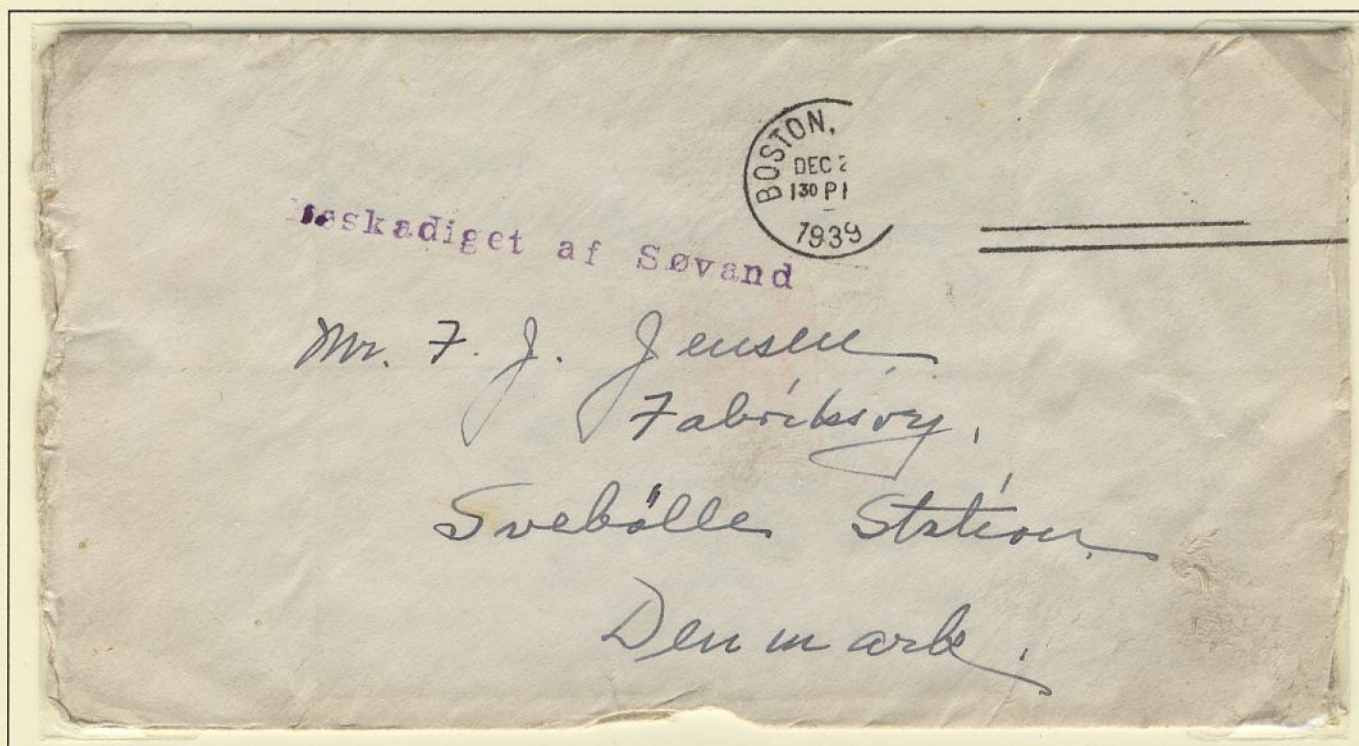 BOSTON,
DEC 2
1 30 P
1939
Beskadiget af Søvand
Mr. F. J. Jensen
Fabriksvej,
Svebölle Station
Denmark.